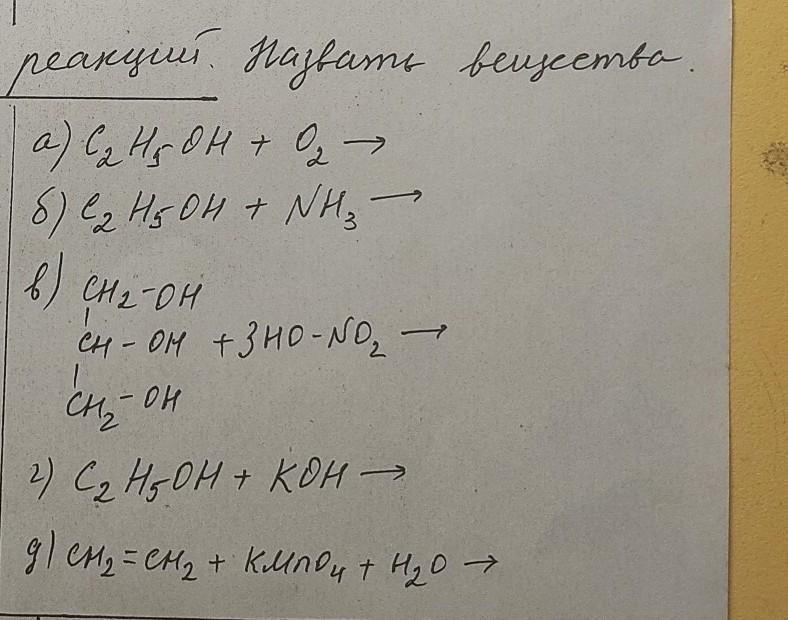 реакций. Назвать вещества.
а) C₂H₅OH + O₂ →
б) C₂H₅OH + NH₃ →
в) CH₂-OH
CH - OH + 3HO-NO₂ →
CH₂-OH
г) C₂H₅OH + KOH →
д) CH₂=CH₂ + KMnO₄ + H₂O →